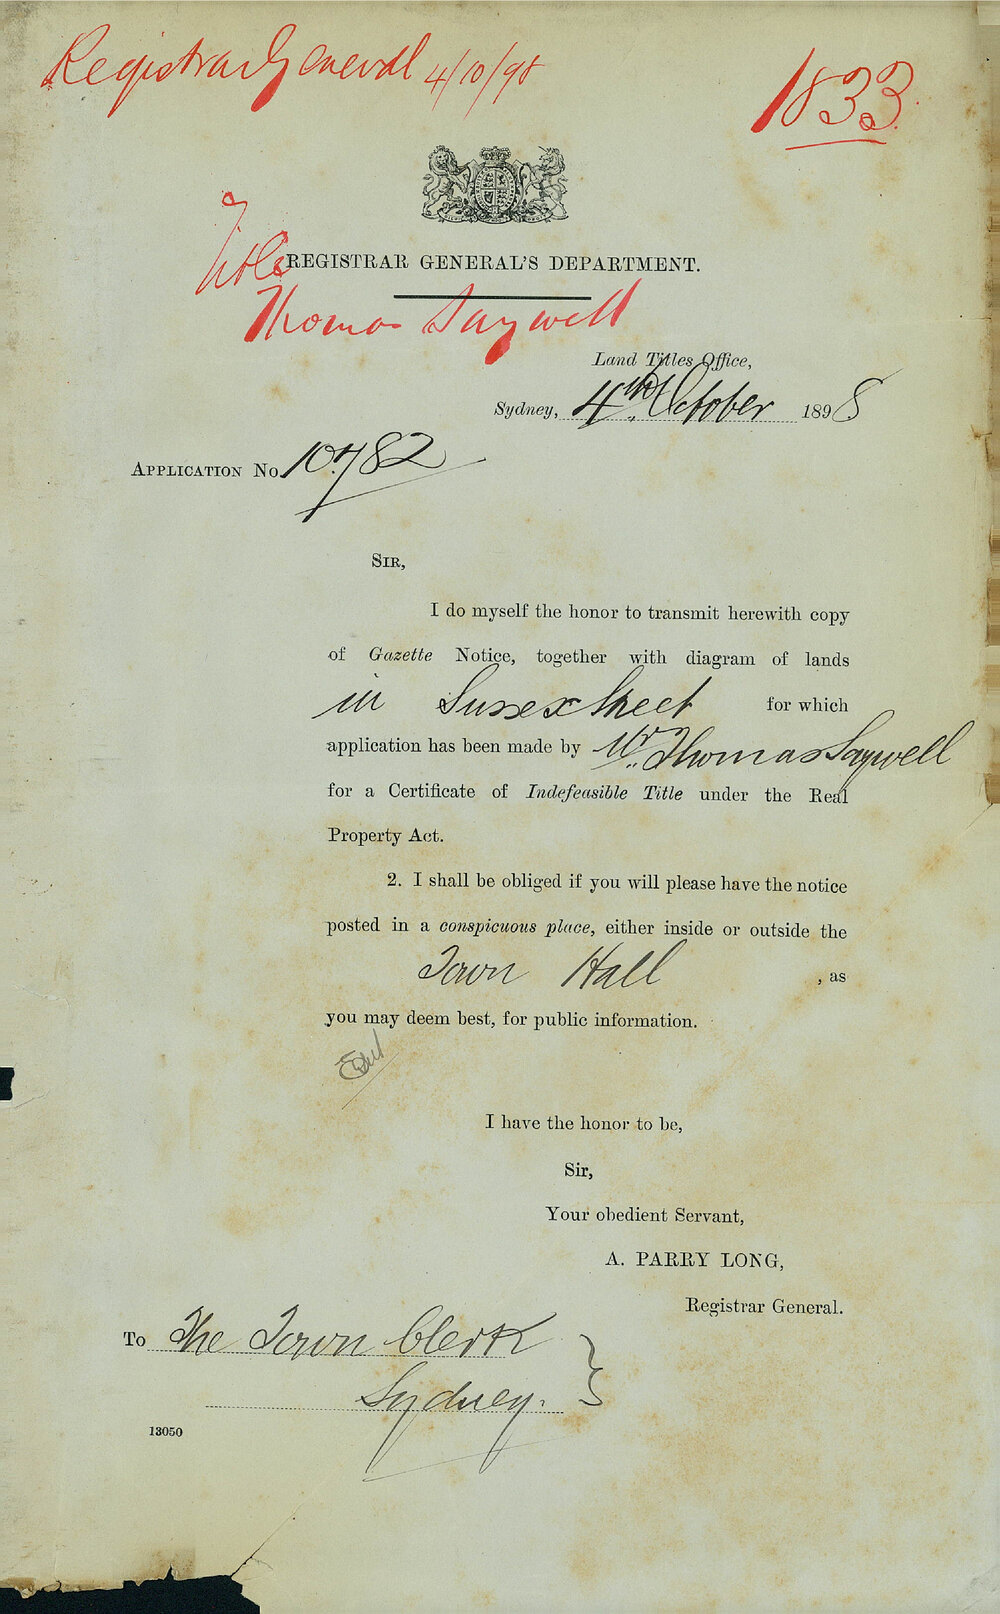 Registrar General 4/10/98
1833
Title
REGISTRAR GENERAL'S DEPARTMENT.
Thomas Saywell
Land Titles Office,
Sydney, 4th October 1898
APPLICATION No 10782
SIR,
I do myself the honor to transmit herewith copy
of Gazette Notice, together with diagram of lands
in Sussex Street for which
application has been made by Mr. Thomas Saywell
for a Certificate of Indefeasible Title under the Real
Property Act.
2. I shall be obliged if you will please have the notice
posted in a conspicuous place, either inside or outside the
Town Hall , as
you may deem best, for public information.
I have the honor to be,
Sir,
Your obedient Servant,
A. PARRY LONG,
Registrar General.
To The Town Clerk
Sydney.
13050